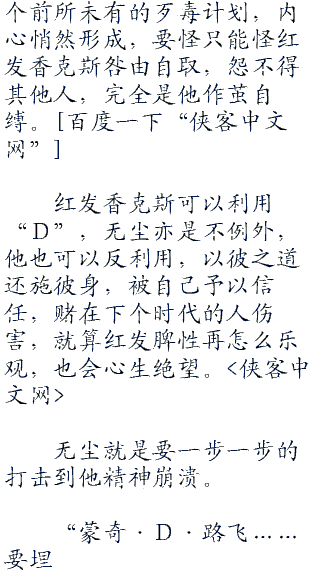 个前所未有的歹毒计划，内
心悄然形成，要怪只能怪红
发香克斯咎由自取，怨不得
其他人，完全是他作茧自
缚。[百度一下“侠客中文
网”]
红发香克斯可以利用
“D”，无尘亦是不例外，
他也可以反利用，以彼之道
还施彼身，被自己予以信
任，赌在下个时代的人伤
害，就算红发脾性再怎么乐
观，也会心生绝望。<侠客中
文网>
无尘就是要一步一步的
打击到他精神崩溃。
“蒙奇·D·路飞……
要埋